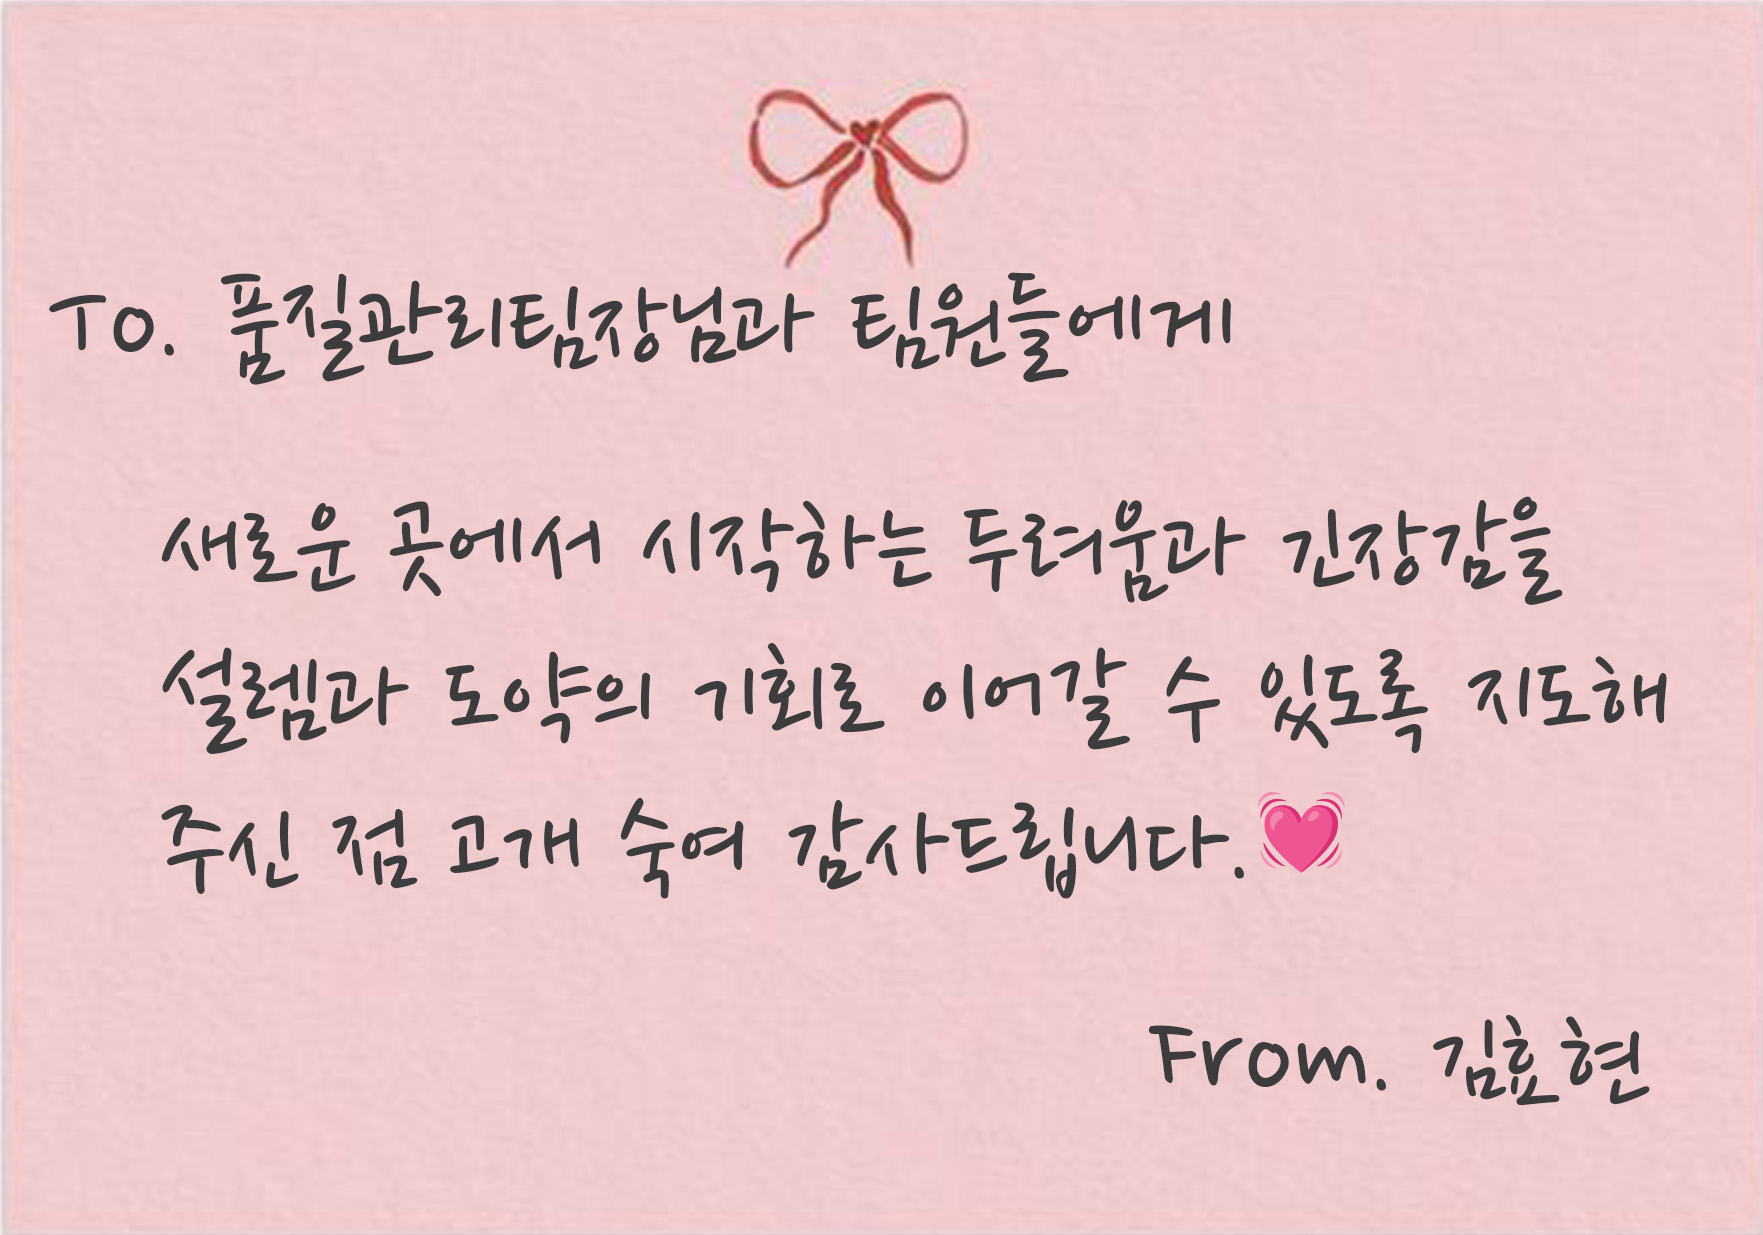 To. 품질관리팀장님과 팀원들에게
새로운 곳에서 시작하는 두려움과 긴장감을
설렘과 도약의 기회로 이어갈 수 있도록 지도해
주신 점 고개 숙여 감사드립니다.💓
From. 김효현